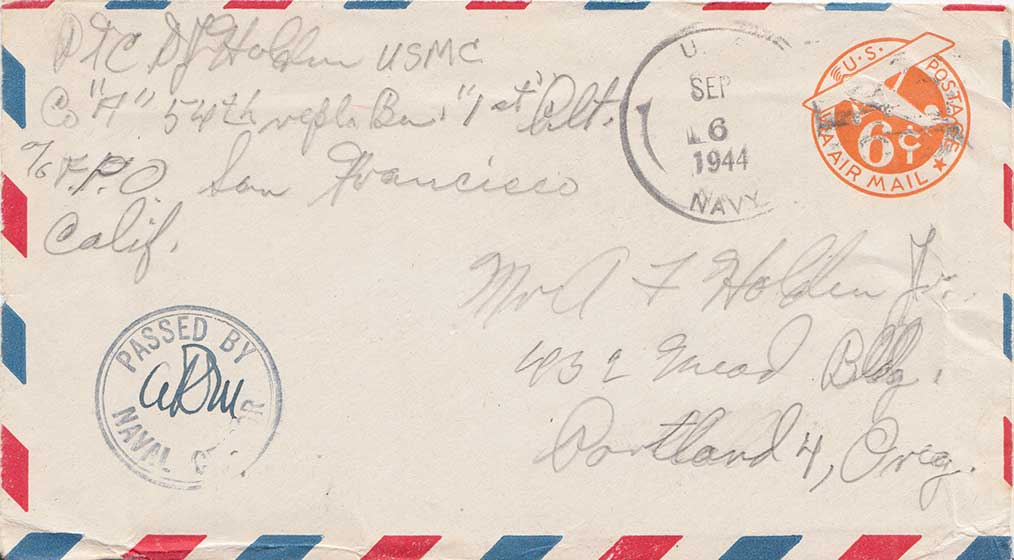 Pfc D J Holden USMC
Co "A" 54th repl. Bn. "1st" Plt.
c/o F.P.O San Francisco
Calif.
U.
SEP
6
1944
NAVY
U.S. POSTAGE
6¢
VIA AIR MAIL
Mr A F Holden Jr.
432 Mead Bldg.
Portland 4, Oreg.
PASSED BY
NAVAL